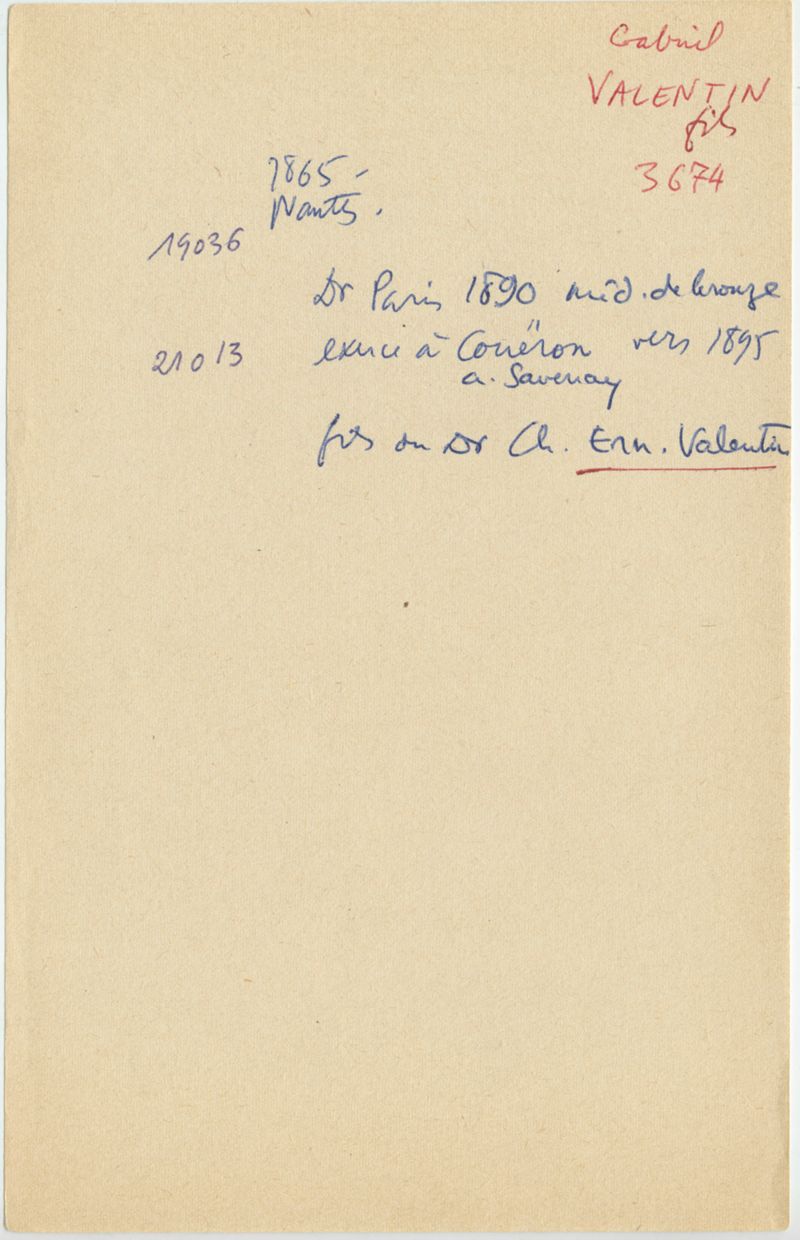 Gabriel
VALENTIN
fils
3674
1865 -
Nantes.
19036
Dr Paris 1890 méd. de bronze
21013
exerce à Couëron vers 1895
a. Savenay
fils du Dr Ch. Ern. Valentin